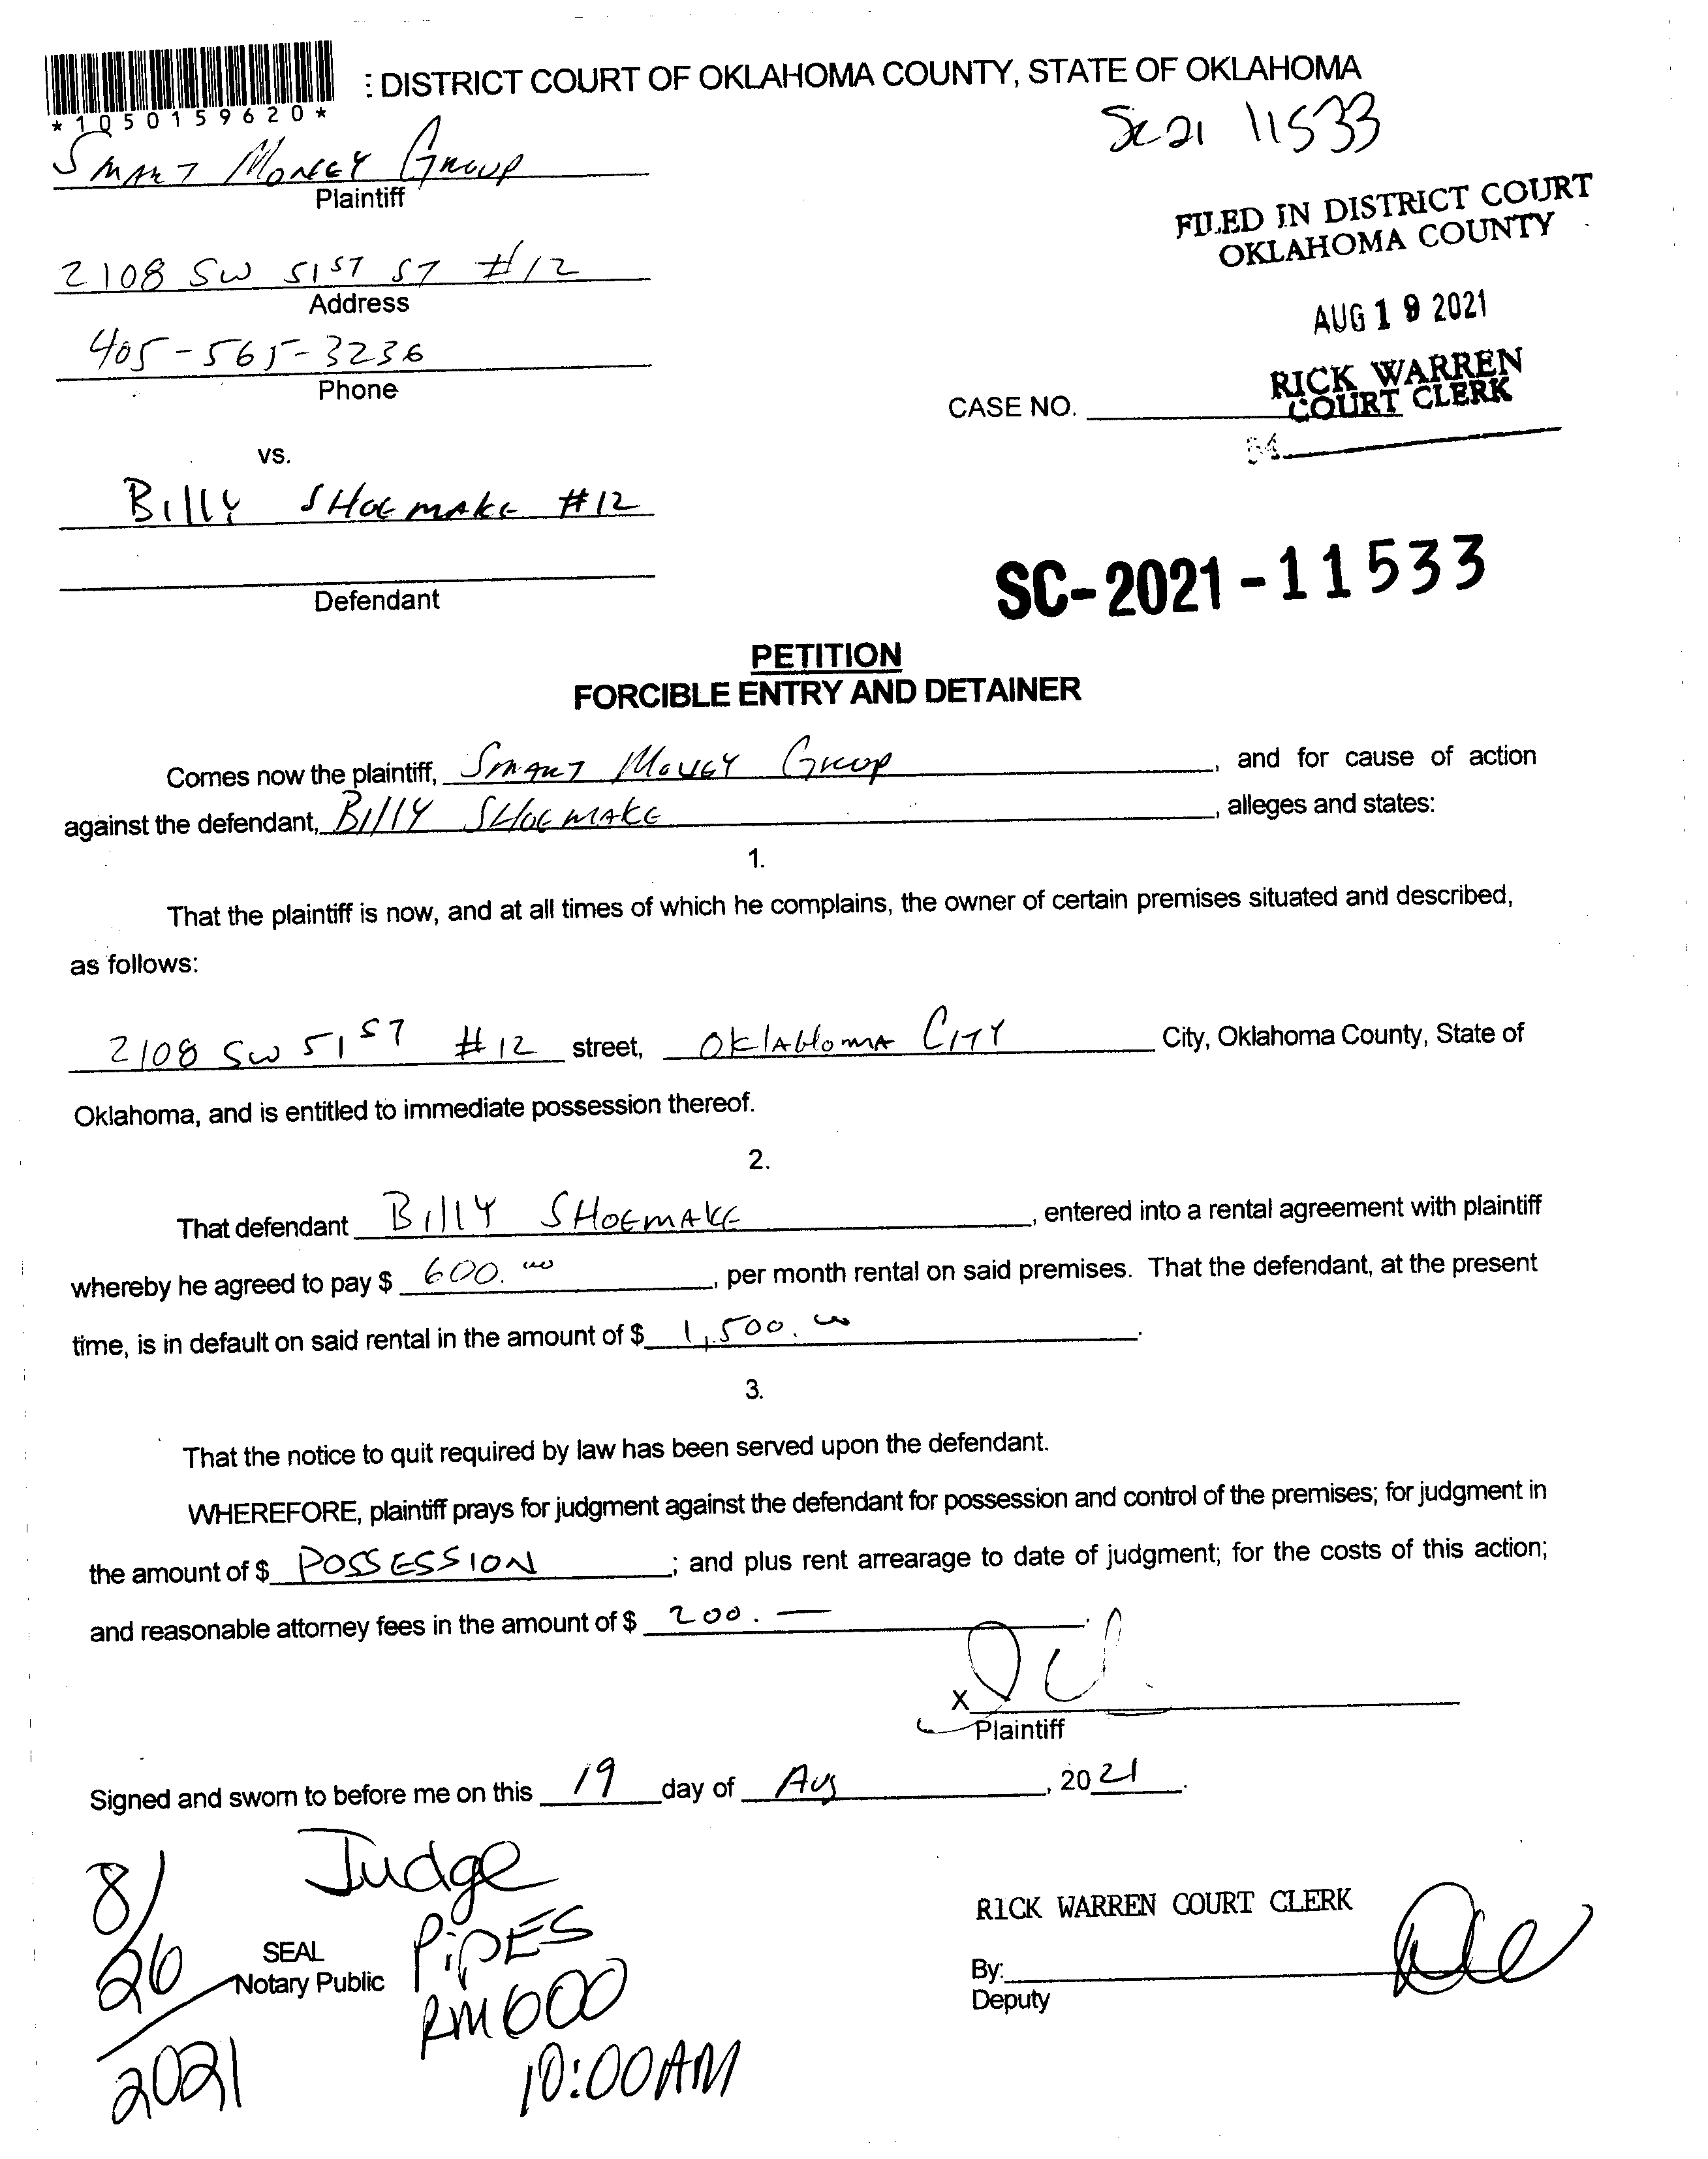 : DISTRICT COURT OF OKLAHOMA COUNTY, STATE OF OKLAHOMA
*1050159620*
SC21 11533
SMART MONEY GROUP
Plaintiff
FILED IN DISTRICT COURT
OKLAHOMA COUNTY
2108 SW 51ST ST #12
Address
AUG 19 2021
405-565-3236
Phone
RICK WARREN
COURT CLERK
CASE NO.
34
vs.
BILLY SHOEMAKE #12
Defendant
SC-2021-11533
PETITION
FORCIBLE ENTRY AND DETAINER
Comes now the plaintiff, SMART MONEY GROUP, and for cause of action
against the defendant, BILLY SHOEMAKE, alleges and states:
1.
That the plaintiff is now, and at all times of which he complains, the owner of certain premises situated and described,
as follows:
2108 SW 51ST #12 street, OKLAHOMA CITY City, Oklahoma County, State of
Oklahoma, and is entitled to immediate possession thereof.
2.
That defendant BILLY SHOEMAKE, entered into a rental agreement with plaintiff
whereby he agreed to pay $ 600.00, per month rental on said premises. That the defendant, at the present
time, is in default on said rental in the amount of $ 1,500.00.
3.
That the notice to quit required by law has been served upon the defendant.
WHEREFORE, plaintiff prays for judgment against the defendant for possession and control of the premises; for judgment in
the amount of $ POSSESSION; and plus rent arrearage to date of judgment; for the costs of this action;
and reasonable attorney fees in the amount of $ 200.—.
X
Plaintiff
Signed and sworn to before me on this 19 day of Aug, 2021.
8/26/2021
Judge
PiPES
RM600
10:00AM
SEAL
Notary Public
RICK WARREN COURT CLERK
By:
Deputy